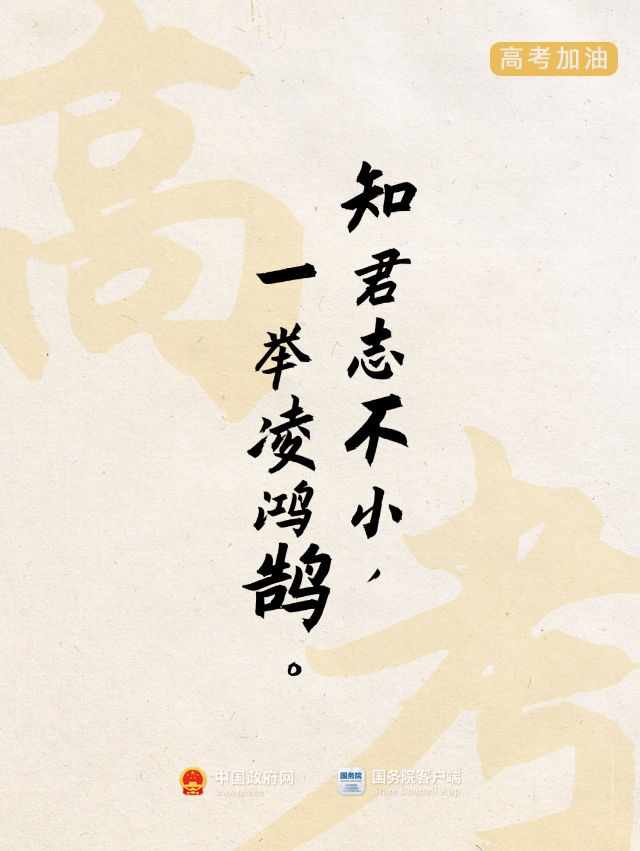 高考加油
高考
知君志不小，
一举凌鸿鹄。
中国政府网
www.gov.cn
国务院
国务院客户端
State Council App